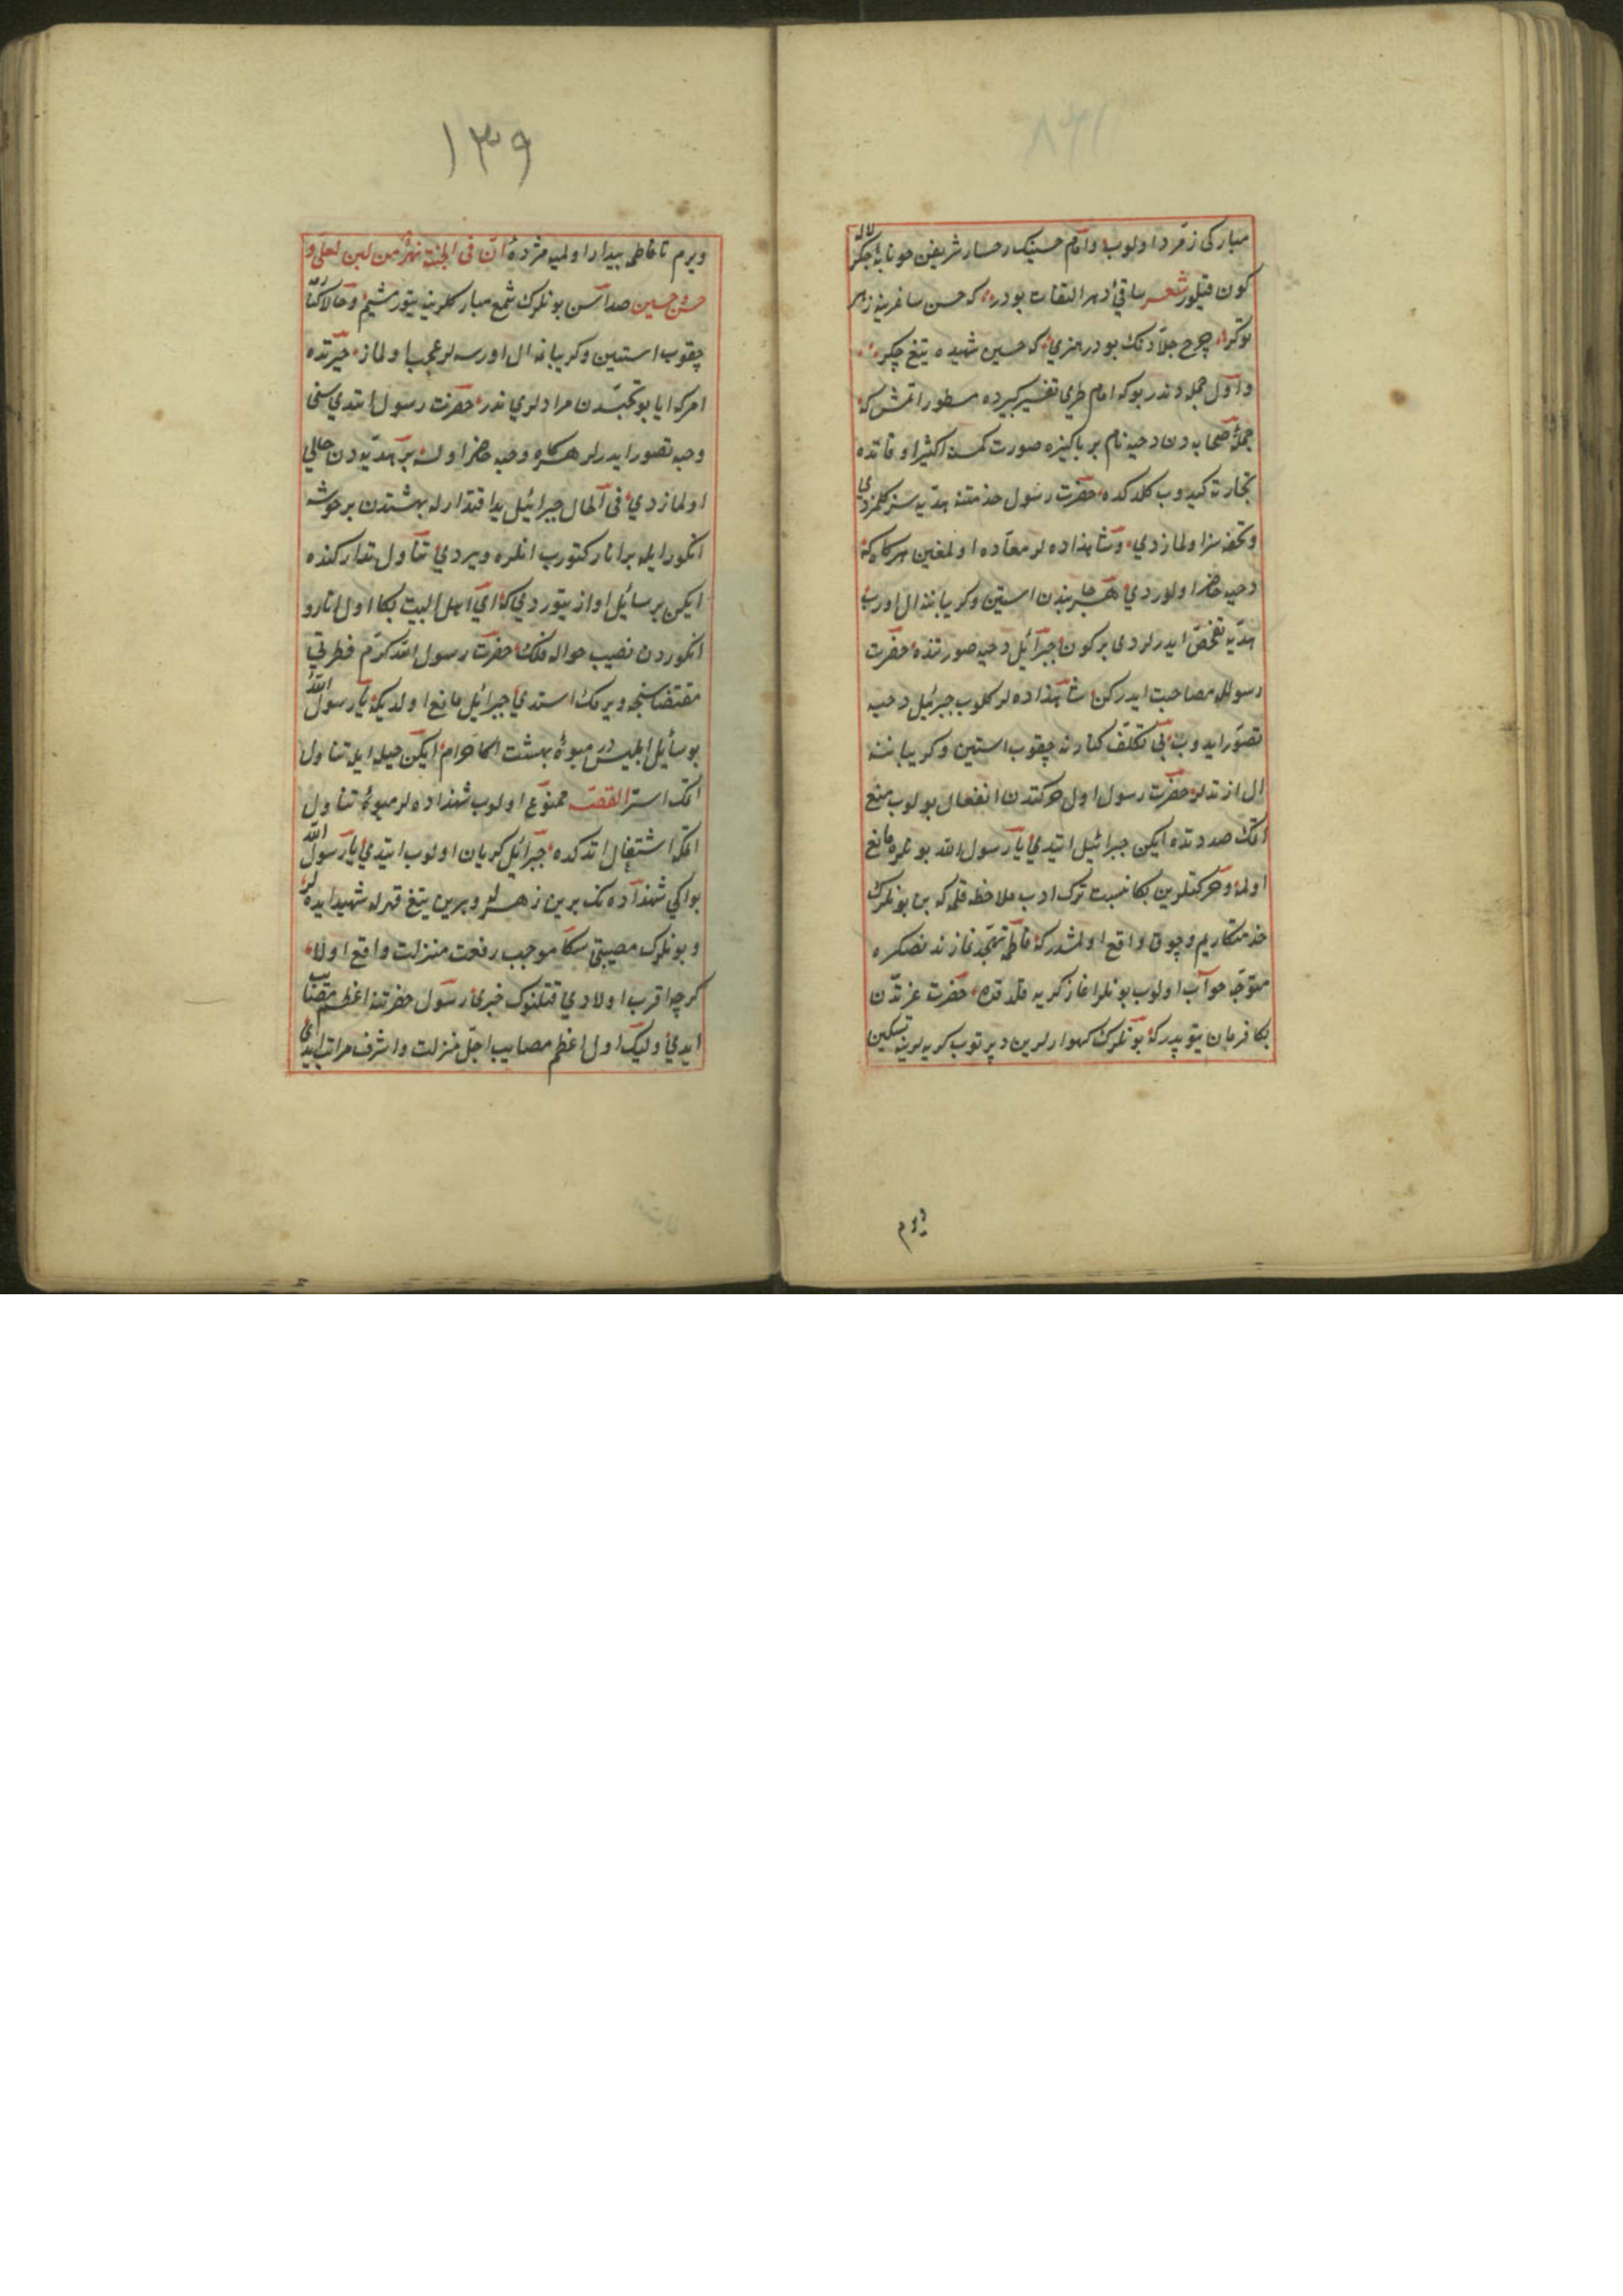 مباركی زمرّد اولوب وامام حسینك رخسار شریفن خونابهٔ جكر لاله
كون قیلور شعر ساقئ دهر التفات بودر كه حسن ساغرینه زهر
توكر چرخ جلّادنك بودر هنری كه حسین شهیده تیغ چكر
واول جمله دندر بو كه امام طبری تفسیر كبیرده مسطور اتمش كه
جملهٔ صحابه دن دحیه نام بر پاكیزه صورت كمسنه اكثر اوقاتده
تجارته كیدوب كلدكده حضرت رسول خدمتنه هدّیه سز كلمزدی
وتحفه سز اولمازدی وشاهزاده لر معتاده اولمغین هركاه كه
دحیه حاضر اولوردی هر جانبندن استین وكریباننه ال اوروب
هدّیه تفحّص ایدرلردی بر كون جبرائیل دحیه صورتنده حضرت
رسولله مصاحبت ایدركن شاهزاده لر كلوب جبرئیل دحیه
تصوّر ایدوب بی تكلّف كنارنه چقوب استین وكریباننه
ال ازتدلر حضرت رسول اول حركتدن انفعال بولوب منع
اتمك صددنده ایكن جبرائیل ایتدی یا رسول الله بونلره مانع
اولمه وحركتلرین بكا نسبت ترك ادب ملاحظه قلمه كه بن بونلرك
خدمتكاریم وچوق واقع اولمشدر كه فاطمه تهجّد نمازندنصكره
متوجّه خواب اولوب بونلر اغاز كریه قلدقده حضرت عزتدن
بكا فرمان یتوپدر كه بونلرك كهوارلرین دپرتوب كریه لرینه تسكین
ویرم
١٣٩
ویرم تا فاطمه بیدار اولمیه مژدهٔ انّ فی الجنّة نهرٌ من لبن لعلی و
حسن وحسین صداسن بونلرك سمع مباركلرینه یتورمشیم وحالا كنارمه
چقوب استین وكریبانمه ال اورسه لر عجب اولماز حیرتده
امر كه ایا بو تجسّسدن مرادلری ندر حضرت رسول ایتدی سنی
دحیه تصور ایدرلر هركاه دحیه حاضر اولسه بر هدّیه دن خالی
اولمازدی فی الحال جبرائیل ید اقتدارله بهشتدن بر خوشه
انكور ایله بر انار كتورب انلره ویردی تناول تداركنده
ایكن بر سائل اواز یتوردی كه ای اهل البیت بكا اول انار و
انكوردن نصیب حواله قلك حضرت رسول الله كرم فطرتی
مقتضاسنجه ویرمك استدی جبرائیل مانع اولدیكه یا رسول الله
بو سائل ابلیسدر میوهٔ بهشت اكا حرام ایكن حیله ایله تناول
اتمك استر القصه ممنوع اولوب شهزاده لر میوهٔ تناول
اتمكه اشتغال اتدكده جبرائیل كریان اولوب ایتدی یا رسول الله
بو ایكی شهزاده نك برین زهرله وبرین تیغ قهرله شهید ایده لر
وبونلرك مصیبتی سكا موجب رفعت منزلت واقع اولا
كرچه اقرب اولادی قتلنوك خبری رسول حضرتنه اعظم مصائب
ایدی ولیك اول اعظم مصایب اجل منزلت واشرف مراتب ایدی